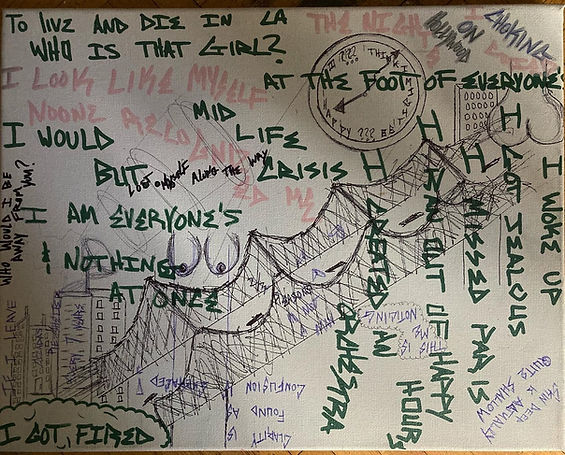 TO LIVE AND DIE IN LA
WHO IS THAT GIRL?
THE NIGHT
CHOKING
ON
HOLLYWOOD
I LOOK LIKE MYSELF
NOONE RECOGNIZED ME
AT THE FOOT OF EVERYONE'S
I WOULD
BUT
MID
LIFE
CRISIS
LOST MYSELF ALONG THE WAY
I AM EVERYONE'S
& NOTHING
AT ONCE
WHO WOULD I BE
AWAY FROM YOU?
THINK
HAPPY
???
I CREATED AN ORCHESTRA
I RAN OUT OF HAPPY HOURS
I MISSED PARIS
I GOT JEALOUS
I WOKE UP
IF I LEAVE
EVERY 7 YEARS
THIS IS
ME
NOTICING
CLARITY IS
FOUND AS
CONFUSION
CAN DEEP
QUITE
SHALLOW
I GOT FIRED